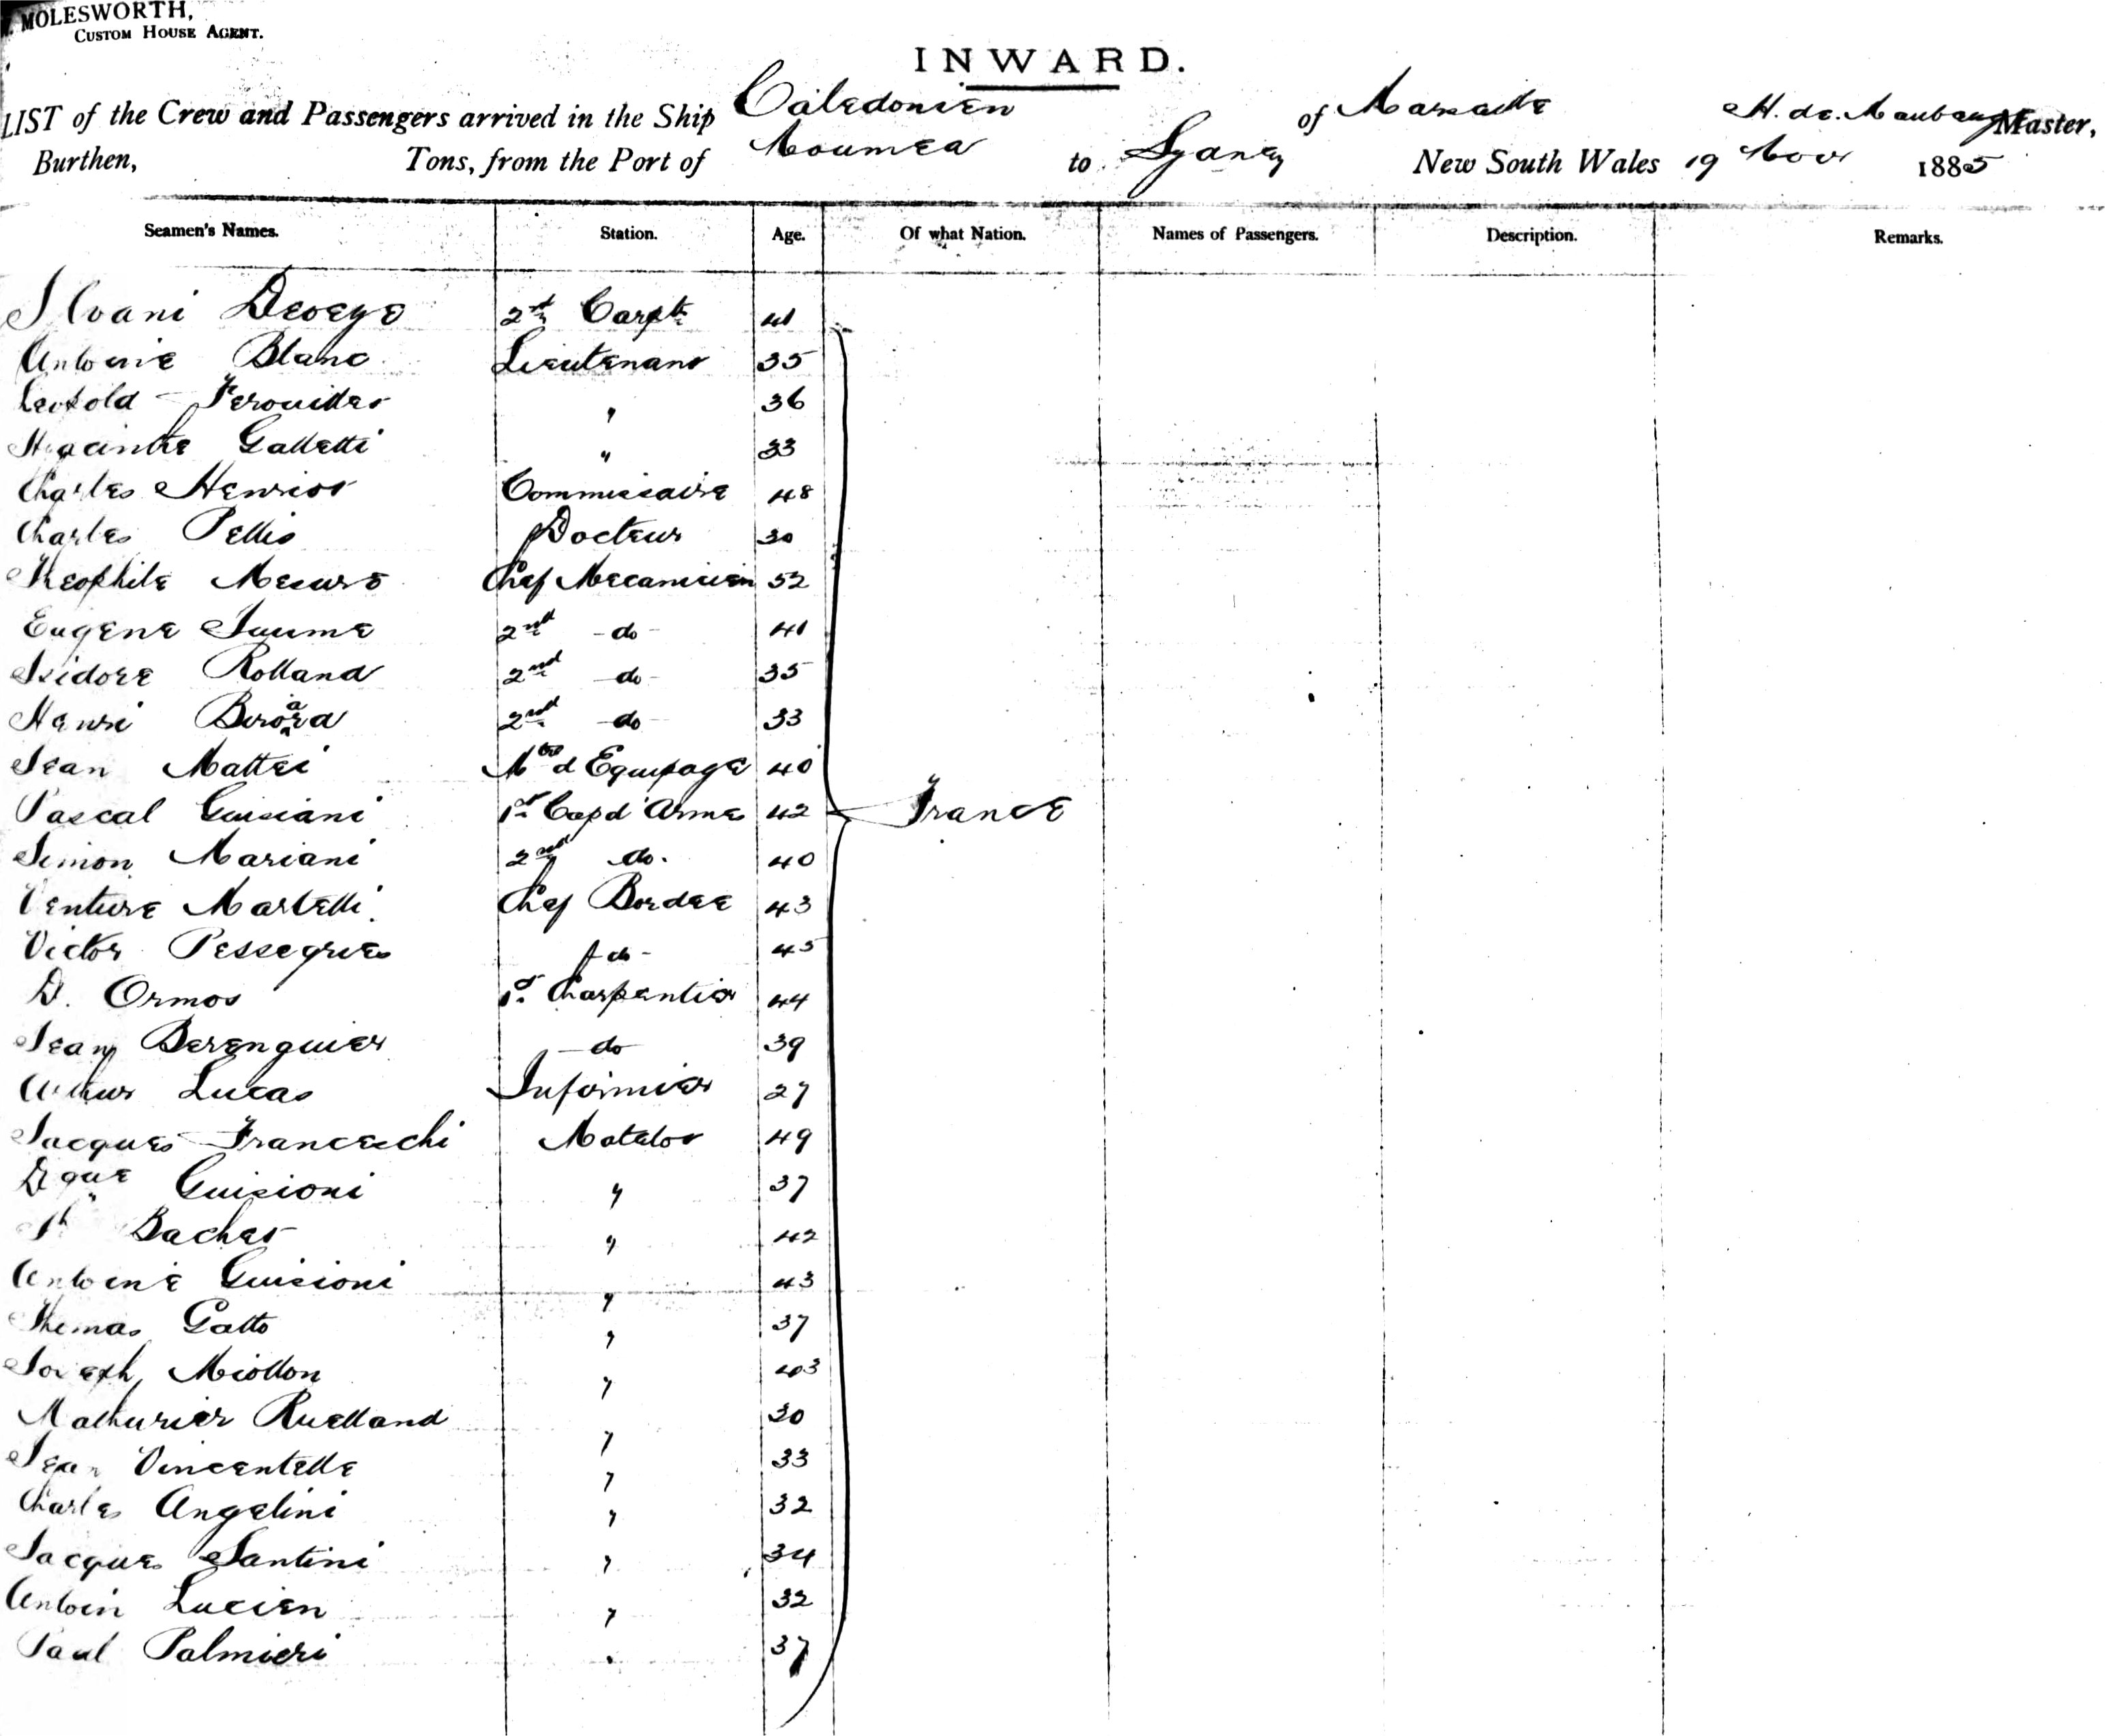 MOLESWORTH,
CUSTOM HOUSE AGENT.
INWARD.
LIST of the Crew and Passengers arrived in the Ship Caledonien of Marseille H. de Maubeuge Master,
Burthen, Tons, from the Port of Noumea to Sydney New South Wales 19 Nov 1885
Seamen's Names. Station. Age. Of what Nation. Names of Passengers. Description. Remarks.
2nd Capt 41
Antoine Blanc Lieutenant 35
Leopold " 36
Hyacinthe Galletti " 33
Charles Henriot Commissaire 48
Charles Pellis Docteur 30
Theophile Chef Mecanicien 52
Eugene Jaume 2nd - do - 41
Isidore Rolland 2nd - do - 35
Henri 2nd - do - 33
Jean Mattei Mtre d Equipage 40
Pascal Guisiani 1st Cap d'Arme 42 France
Simon Mariani 2nd do. 40
Venture Martelli Chef Bordee 43
Victor do - 45
D. Ormos 1st Charpentier 44
Jean Berenguier - do - 39
Arthur Lucas Infirmier 27
Jacques Franceschi Matelot 49
Dque Guisioni " 37
Jh Bachet " 42
Antoine Guisioni " 43
Thomas Gatto " 37
Joseph Miollon " 43
Mathurier Ruelland " 30
Jean Vincentelle " 33
Charles Angelini " 32
Jacques Santini " 34
Antoin Lucien " 32
Paul Palmieri " 37